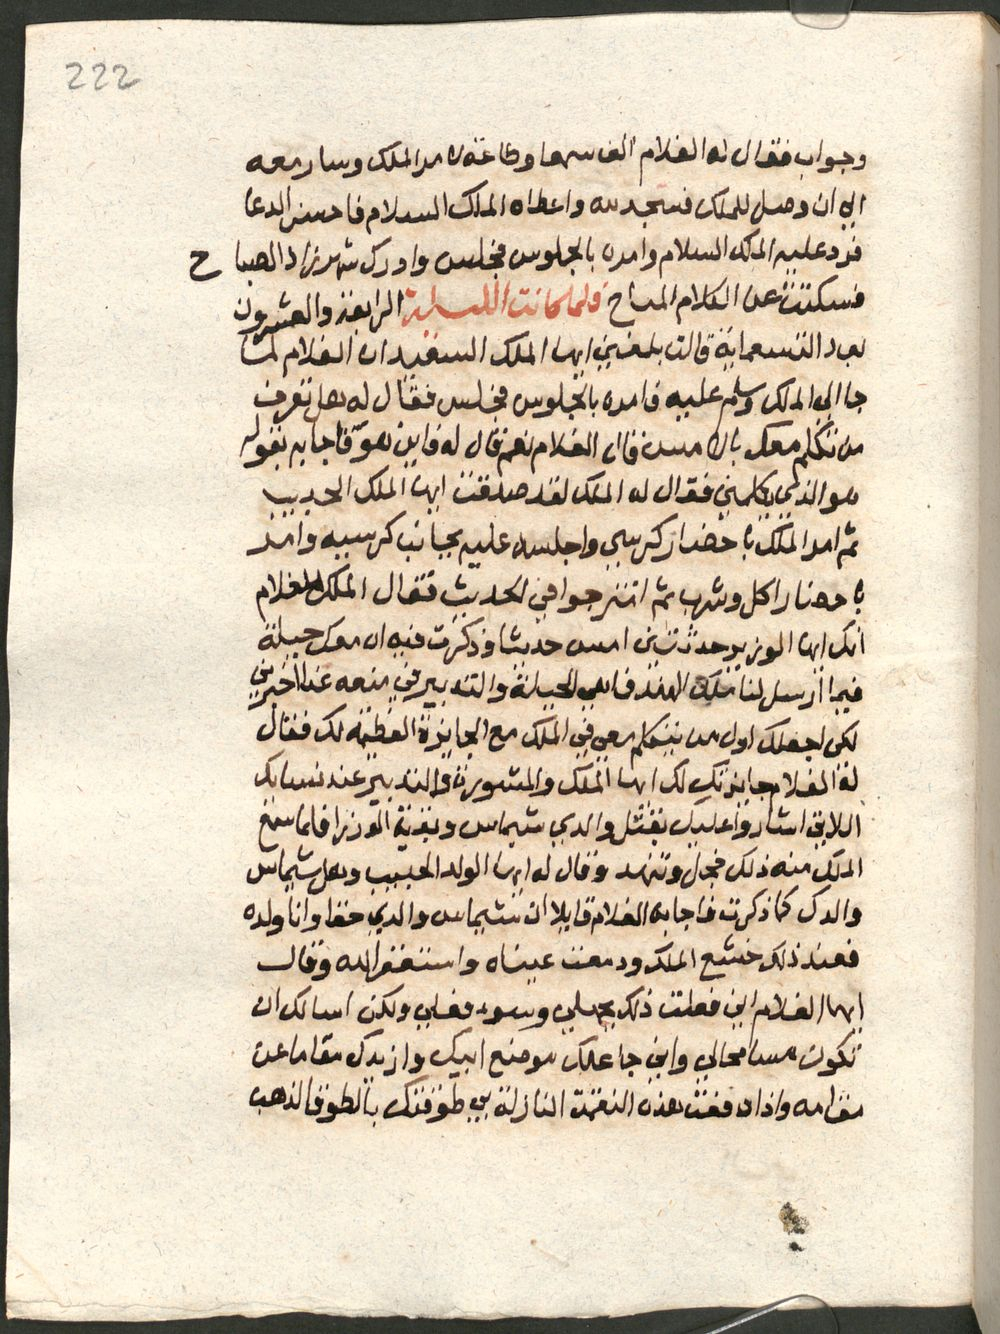 222
وجواب فقال له الغلام الف سمعا وطاعة لامر الملك وسار معه
الي ان وصل للملك فسجد له واعطاه الملك السلام فاحسن الدعا
فرد عليه الملك السلام وامره بالجلوس فجلس وادرك شهرزاد الصباح
فسكتت عن الكلام المباح فلما كانت الليلة الرابعة والعشرون
بعد التسعماية قالت بلغني ايها الملك السعيد ان الغلام لما
جا الي الملك وسلم عليه فامره بالجلوس فجلس فقال له هل تعرف
من تكلم معك بالامس قال الغلام نعم قال له فاين هو فاجابه بقوله
هو الذي يكلمني فقال له الملك لقد صدقت ايها الملك الحبيب
ثم امر الملك باحضار كرسي واجلسه عليه بجانب كرسيه وامر
باحضار اكل وشرب ثم امتزجوا في الحديث فقال الملك للغلام
انك ايها الوزير حدثتني امس حديثا وذكرت فيه ان معك حيلة
فيما ارسل لنا ملك الهند فما هي الحيلة والتدبير في منعه عنا اخبرني
لكي اجعلك اول من يتكلم معي في الملك مع الجايزة العظيمة لك فقال
له الغلام جايزتك لك ايها الملك والمشورة والتدبير عند نسايك
اللاتي اشاروا عليك بقتل والدي شيماس وبقية الوزرا فلما سمع
الملك منه ذلك فخجل وتنهد وقال له ايها الولد الحبيب وهل شيماس
والدك كما ذكرت فاجابه الغلام قايلا ان شيماس والدي حقا وانا ولده
فعند ذلك خشع الملك ودمعت عيناه واستغفر الله وقال
ايها الغلام اني فعلت ذلك بجهلي وسوء فعلي ولكن اسالك ان
تكون مسامحالي واني جاعلك موضع ابيك وازيدك مقاما عن
مقامه واذا دفعت هذه النقمة النازلة بي طوقتك بالطوق الذهب